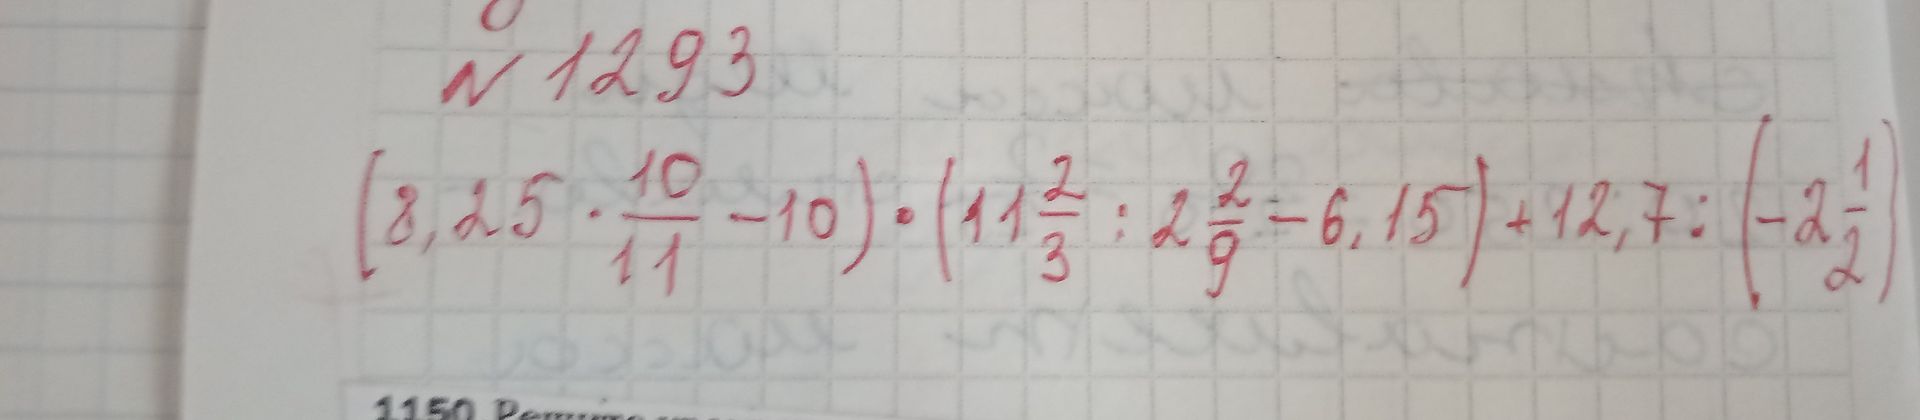 N 1293
(8,25 · 10/11 - 10) · (11 2/3 : 2 2/9 - 6,15) + 12,7 : (-2 1/2)
1150